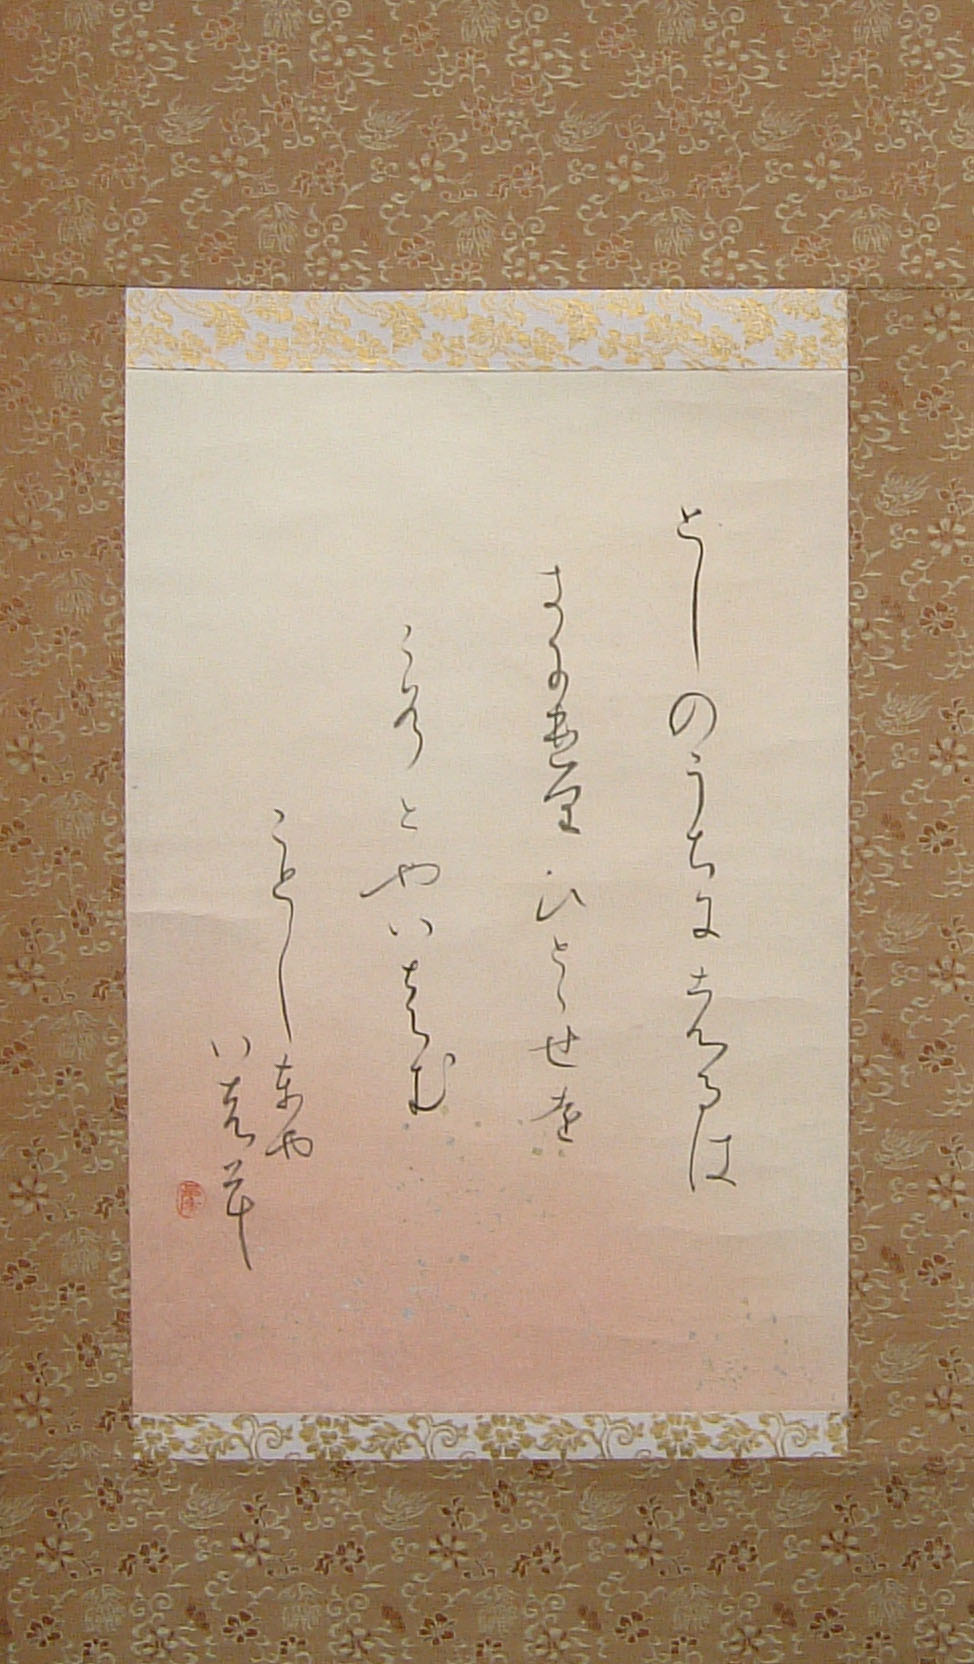 としのうちにはるは
きにけりひとゝせを
こそとやいはむ
ことしとや
いはむ